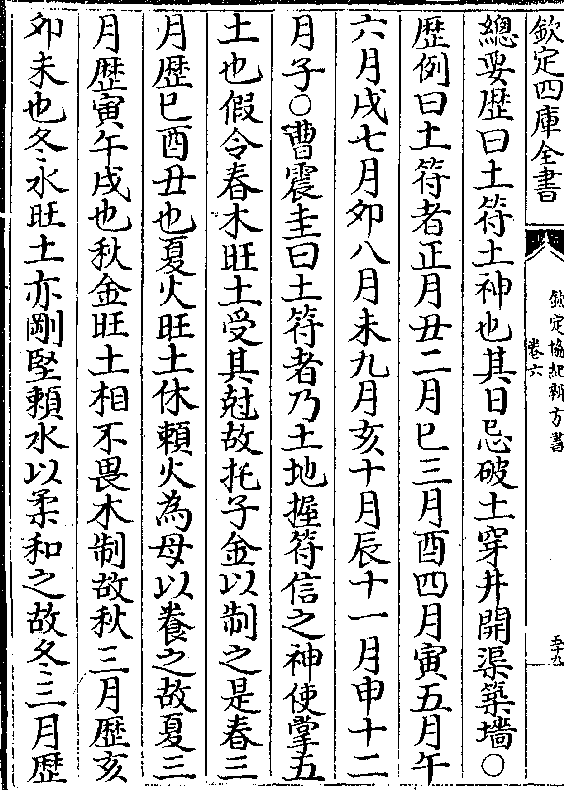 欽定四庫全書
欽定協紀辨方書
卷六
五十九
總要歴曰土符土神也其日忌破土穿井開渠築墻○
歴例曰土符者正月丑二月巳三月酉四月寅五月午
六月戌七月卯八月未九月亥十月辰十一月申十二
月子○曹震圭曰土符者乃土地握符信之神使掌五
土也假令春木旺土受其尅故托子金以制之是春三
月歴巳酉丑也夏火旺土休賴火為母以養之故夏三
月歴寅午戌也秋金旺土相不畏木制故秋三月歴亥
卯未也冬水旺土亦剛堅頼水以柔和之故冬三月歴